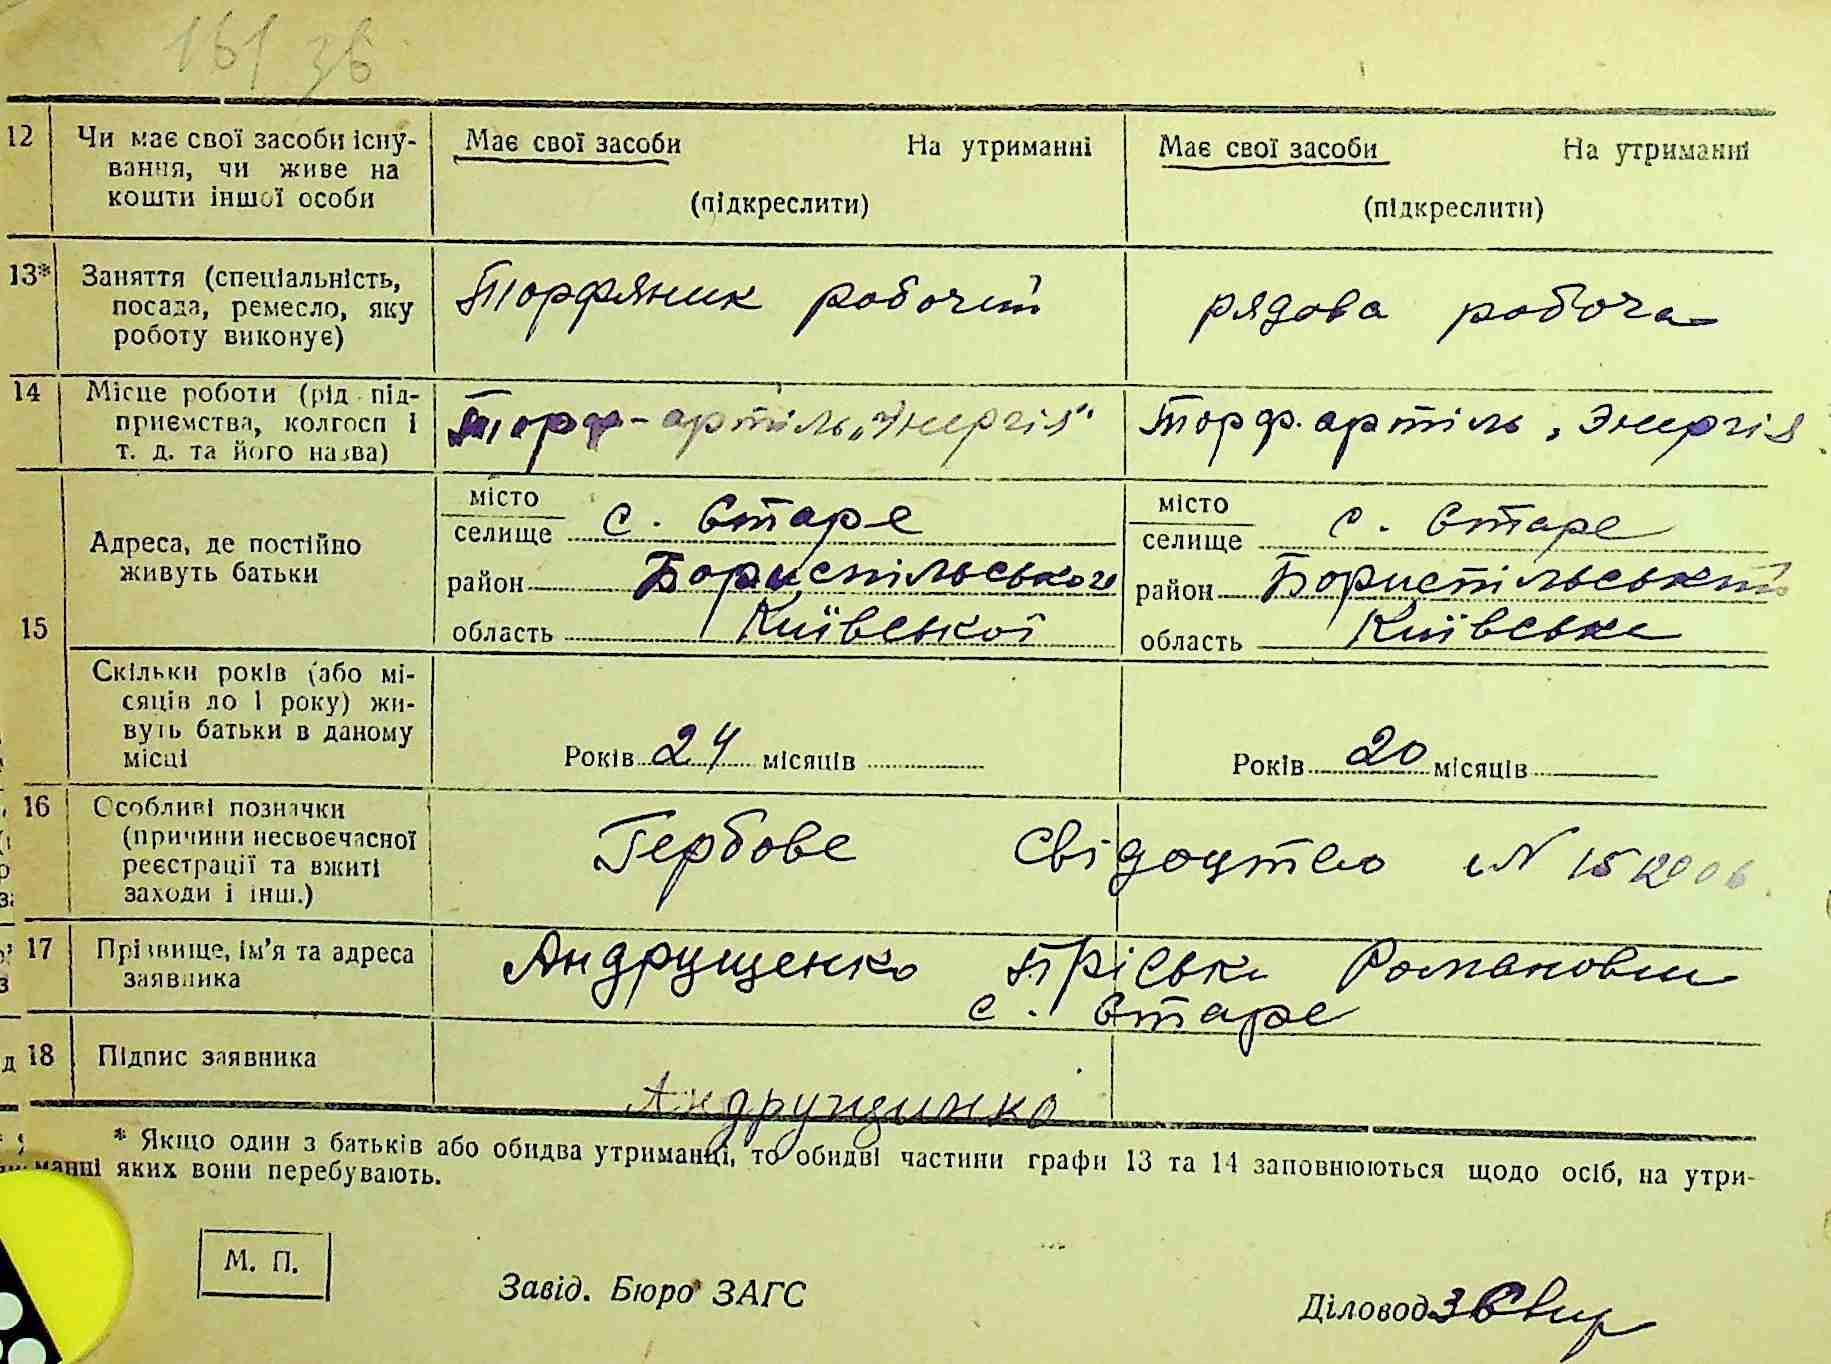 161 зв
12 Чи має свої засоби існу- Має свої засоби На утриманні Має свої засоби На утриманні
вання, чи живе на
кошти іншої особи (підкреслити) (підкреслити)
13* Заняття (спеціальність, Торфяник робочий рядова робоча
посада, ремесло, яку
роботу виконує)
14 Місце роботи (рід під- Торф-артіль „Энергія" Торф. артіль „Энергія
приємства, колгосп і
т. д. та його назва)
15 Адреса, де постійно місто селище с. Старе місто селище с. Старе
живуть батьки район Бориспільського район Бориспільський
область Київської область Київське
Скільки років (або мі-
сяців до 1 року) жи-
вуть батьки в даному
місці Років 24 місяців Років 20 місяців
16 Особливі позначки Гербове свідоцтво №
(причини несвоєчасної
реєстрації та вжиті
заходи і інш.)
17 Прізвище, ім'я та адреса Андрущенко Пріська Романовна
заявника с. Старе
18 Підпис заявника Андрущинко
* Якщо один з батьків або обидва утриманці, то обидві частини графи 13 та 14 заповнюються щодо осіб, на утри-
манні яких вони перебувають.
М. П.
Завід. Бюро ЗАГС Діловод